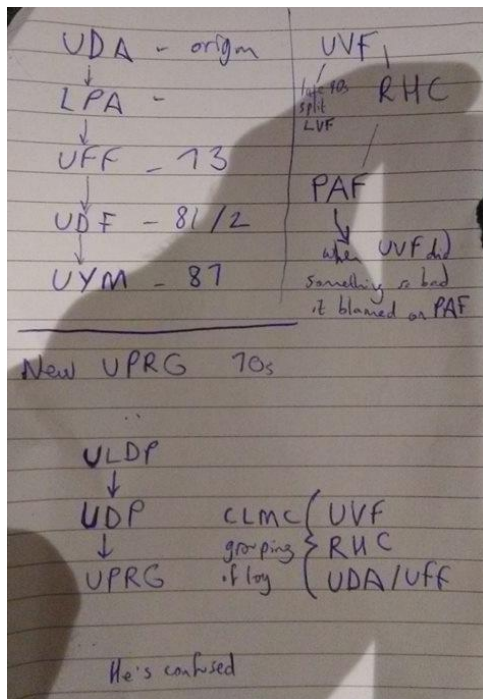 UDA - origin
LPA -
UFF - 73
UDF - 81/2
UYM - 87
UVF
late 90s
split
LVF
RHC
PAF
when UVF did
something so bad
it blamed on PAF
New UPRG 70s
ULDP
UDP
UPRG
CLMC
grouping
of loy
UVF
RHC
UDA/UFF
He's confused